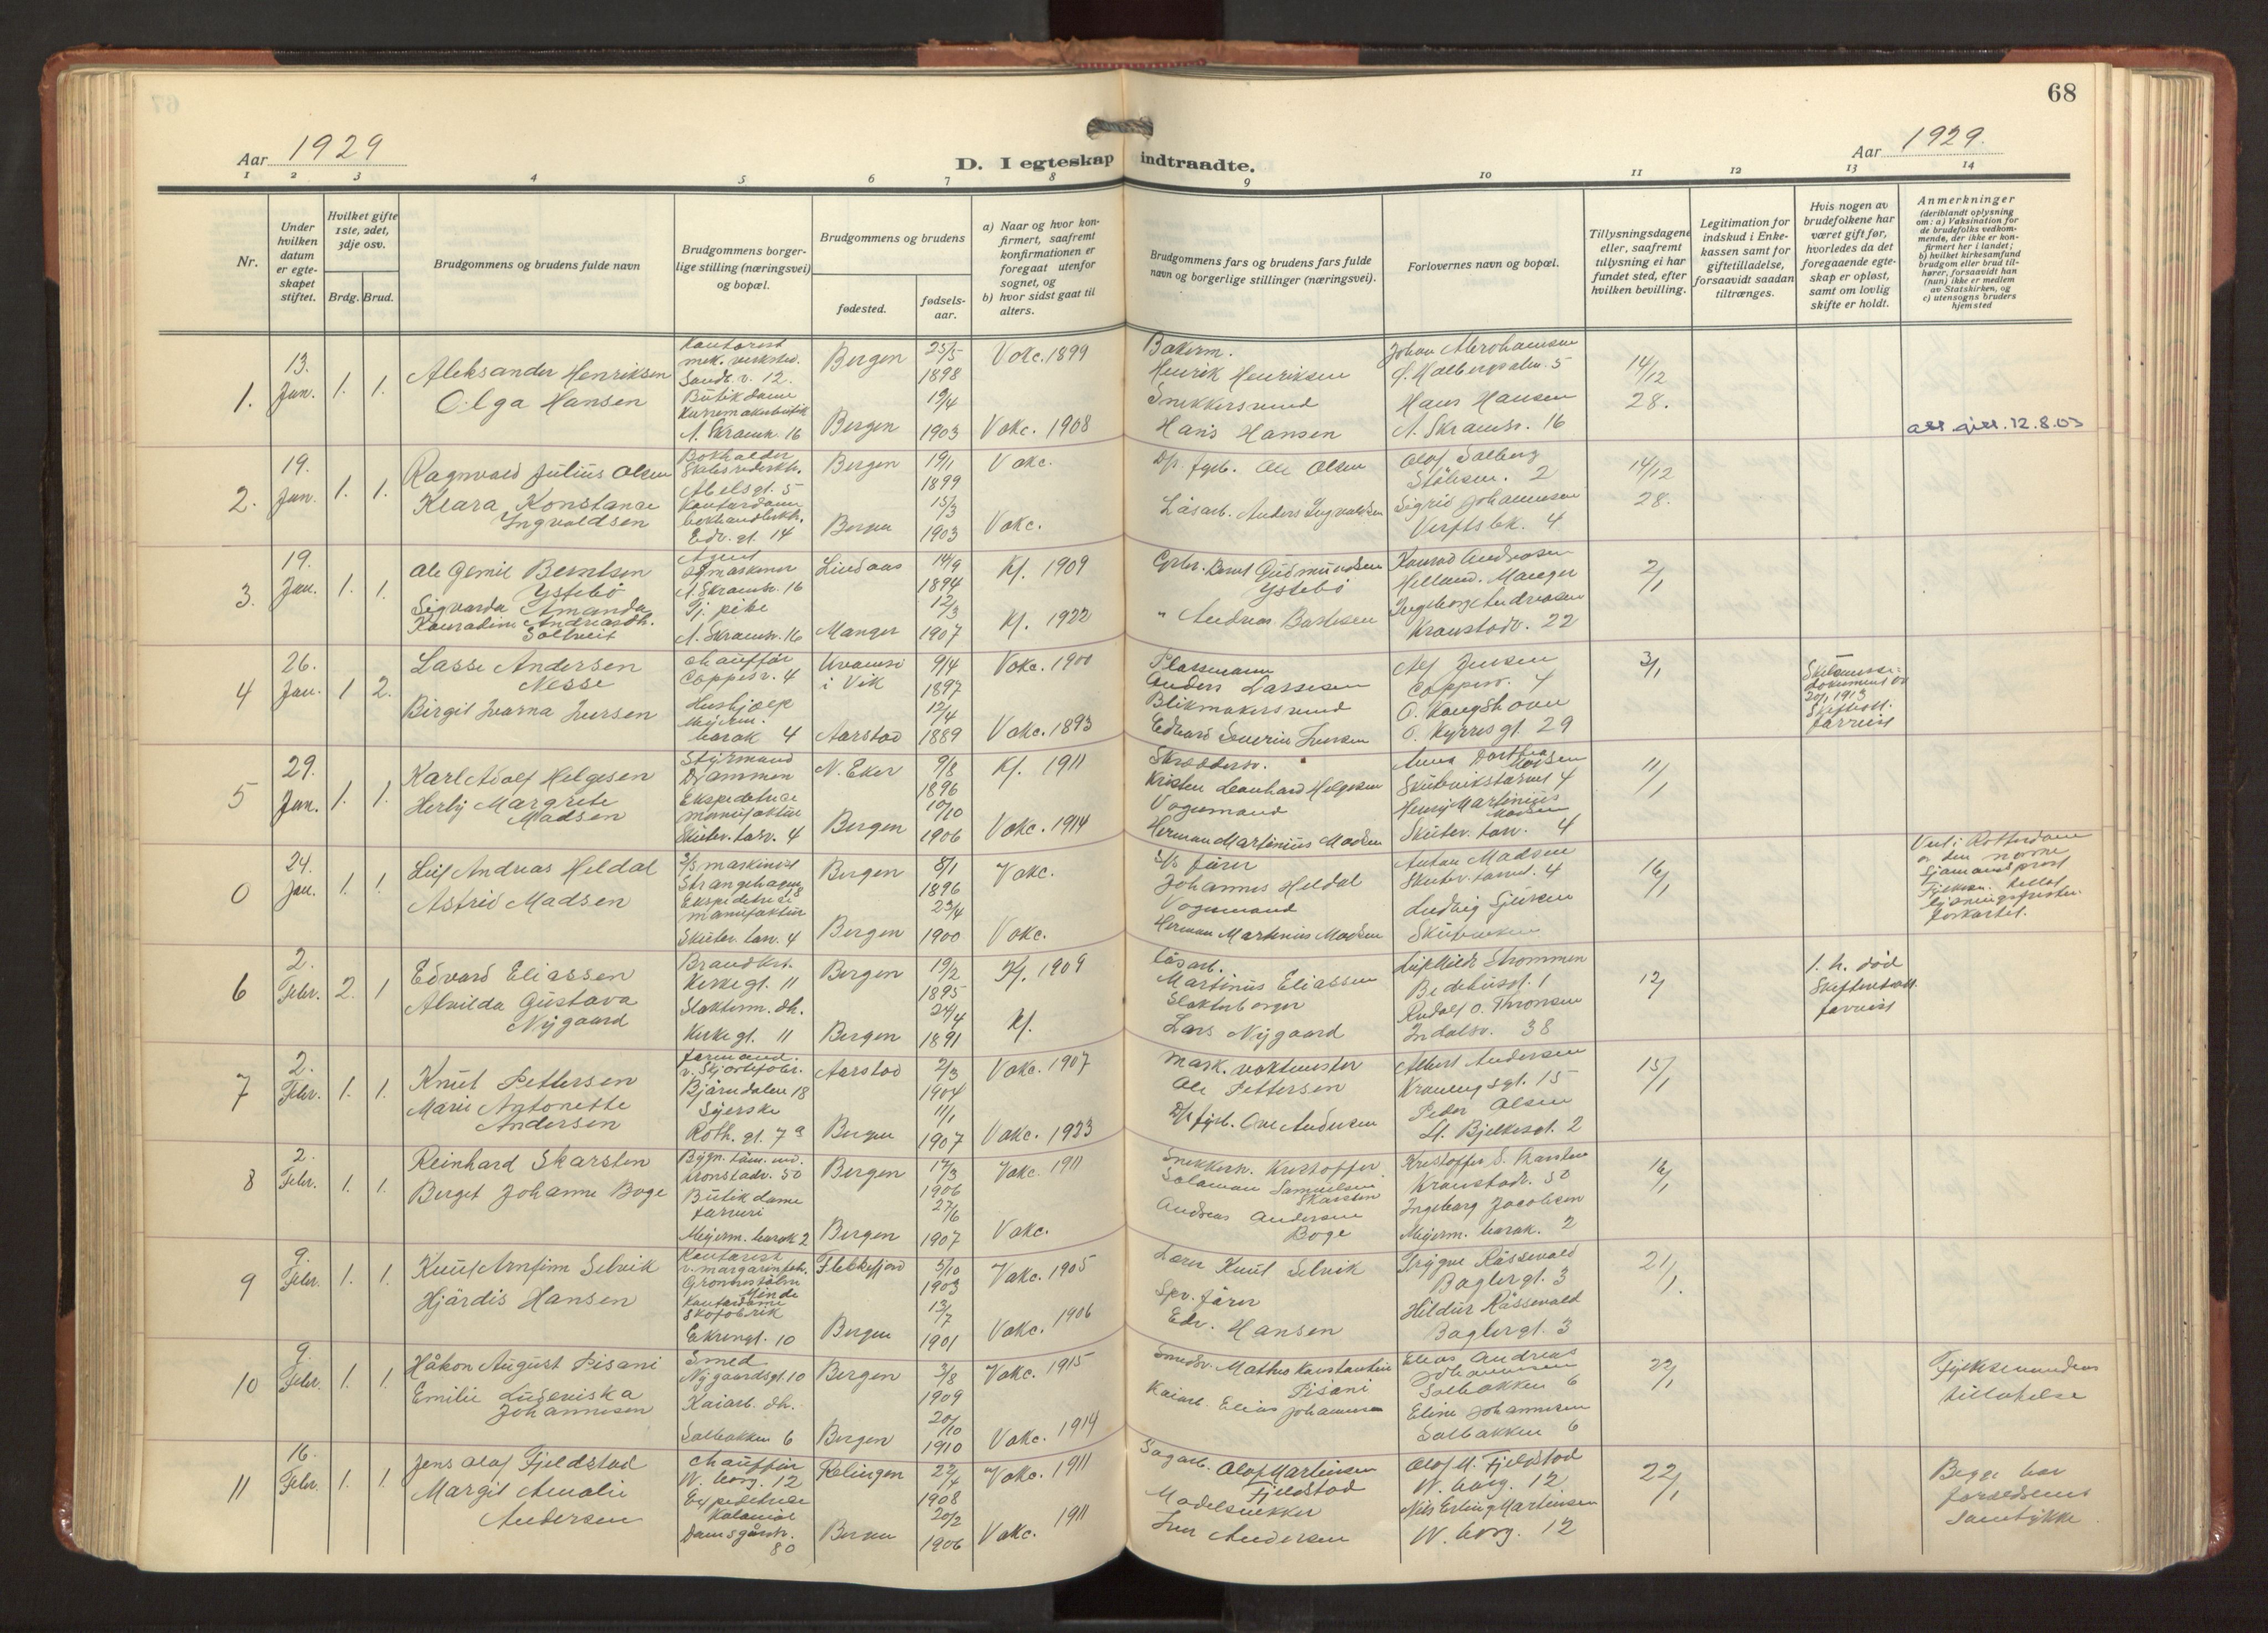 68
Aar 1929
D. I egteskap indtraadte.
Aar 1929.
1 2 3 4 5 6 7 8 9 10 11 12 13 14
Nr.
Under hvilken datum er egteskapet stiftet.
Hvilket gifte 1ste, 2det, 3dje osv.
Brdg. Brud.
Brudgommens og brudens fulde navn
Brudgommens borgerlige stilling (næringsvei) og bopæl.
Brudgommens og brudens
fødested.
fødselsaar.
a) Naar og hvor konfirmert, saafremt konfirmationen er foregaat utenfor sognet, og
b) hvor sidst gaat til alters.
Brudgommens fars og brudens fars fulde navn og borgerlige stillinger (næringsvei).
Forlovernes navn og bopæl.
Tillysningsdagene eller, saafremt tillysning ei har fundet sted, efter hvilken bevilling.
Legitimation for indskud i Enkekassen samt for giftetilladelse, forsaavidt saadan tiltrænges.
Hvis nogen av brudefolkene har været gift før, hvorledes da det foregaaende egteskap er opløst, samt om lovlig skifte er holdt.
Anmerkninger
(deriblandt oplysning om: a) Vaksination for de brudefolks vedkommende, der ikke er konfirmert her i landet; b) hvilket kirkesamfund brudgom eller brud tilhører, forsaavidt han (hun) ikke er medlem av Statskirken, og c) utensogns bruders hjemsted
1. 13. Jan. 1. 1.
Aleksander Henriksen
Olga Hansen
Kontorist
mek. verksted.
Sandv. v. 12.
Butikdame
N. Skramsv. 16
Bergen 25/5 1898 Vakc. 1899
Bergen 19/4 1903 Vakc. 1908
Bakerm.
Henrik Henriksen
Snekkersvend
Hans Hansen
Johan Abrahamsen
Hans Hansen
N. Skramsv. 16
14/12 28.
2. 19. Jan. 1. 1.
Ragnvald Julius Olsen
Klara Konstanse
Ingvaldsen
Bokholder
Abelsgt. 5
Kontordame
Edv. gt. 14
Bergen 19/1 1899 Vakc.
Bergen 15/3 1903 Vakc.
D/s fyrb. Ole Olsen
Løsarb. Anders Ingvaldsen
Olaf Solberg
Stølesm. 2
Sigrid Johannesen
Verftsbk. 4
14/12 28.
3. 19. Jan. 1. 1.
Ole Gemil Berntsen
Ystebø
Sigvarda Amanda
Konradine Andreasdtr.
Soltveit
Agent
N. Skramsv. 16
Tj. pike
N. Skramsv. 16
Lindaas 14/9 1894 Kf. 1909
Manger 12/3 1907 Kf. 1922
Gbr. Bernt Gudmundsen
Ystebø
" Andreas
Konrad Andreasen
Helland. Manger
Ingeborg Andreasen
Kronstadv. 22
2/1
4 26. Jan. 1 2.
Lasse Andersen
Nesse
Birgit Ivarna Iversen
chauffør
Coppesv. 4
Hushjælp
barak 4
i Vik 9/4 1897 Vakc. 1900
Aarstad 12/4 1889 Vakc. 1893
Plassmann
Anders Lassesen
Blikmakersvend
Edvard Severin Iversen
Alf Jensen
Coppesv. 4
O. Kyrresgt. 29
3/1
20/1 1913
5 29. Jan. 1. 1.
Karl Adolf Helgesen
Herbj Margrete
Madsen
Styrmand
Djammen
Ekspeditrise
manufaktur
Skutev. torv. 4
N. Eker 9/8 1896 Kf. 1911
Bergen 10/10 1906 Vakc. 1914
Skrædderm.
Kristen Leonhard Helgesen
Vognmand
Herman Martinius Madsen
Anna Dorthea
Madsen
Skuteviks torvet 4
Henry Martinius
Madsen
Skutev. torv. 4
11/1
0 24. Jan. 1. 1.
Leif Andreas Heldal
Astrid Madsen
D/s maskinist
Strangehagen
18
Ekspeditrise
manufaktur
Skutev. torv. 4
Bergen 8/1 1896 Vakc.
Bergen 23/4 1900 Vakc.
D/s fører
Johannes Heldal
Vognmand
Herman Martinius Madsen
Anton Madsen
Skutev. torvet. 4
Ludvig Sjursen
16/1
Viet i Rotterdam
av den norske
sjømandsprest
6 2. Febr. 2. 1
Edvard Eliassen
Alvilda Gustava
Nygaard
Kirkegt. 11
Slakterm. dtr.
Kirkegt. 11
Bergen 19/2 1895 Kf. 1909
Bergen 24/4 1891 Kf.
Løsarb.
Martinus Eliassen
Slakterborger
Lars Nygaard
Bedehusgt. 1
Rudolf O. Thronsen
Indalsv. 38
12/1
1. h. død
7 2. Febr. 1. 1.
Knut Pettersen
Marie Antonette
Andersen
formand.
Bjørndalen 18
Syerske
Roth. gt. 7a
Aarstad 2/3 1904 Vakc. 1907
Bergen 11/1 1907 Vakc. 1923
Mask. vaktmester
Ole Pettersen
D/s fyrb. Ove Andersen
Albert Andersen
Kroneng sgt. 15
Peder Olsen
St. Bjelkesgt. 2
15/1
8 2. Febr. 1. 1.
Reinhard Skarsten
Berget Johanne Boge
Kronstadv. 50
Butikdame
Meyerm. barak 2
Bergen 17/3 1906 Vakc. 1911
Bergen 27/6 1907 Vakc.
Snekkerm. Kristoffer
Salomon Samuelsen
Skarsten
Andreas Andersen
Boge
Kristoffer S. Skarsten
Kronstadv. 50
Ingeborg Jacobsen
Meyerm. barak. 2
16/1
9 9. Febr. 1. 1.
Knut Arnfinn Selvik
Hjørdis Hansen
Kontorist
v. margarinfabr.
Minde
Kontordame
Skofabrik
Ekrengt. 10
Flekkefjord 3/10 1903 Vakc. 1905
Bergen 13/7 1901 Vakc. 1906
Lærer Knut Selvik
Spv. fører
Edv. Hansen
Trygve Røssevold
Baglergt. 3
Hildur Røssevold
Baglergt. 3
21/1.
10 9. Febr. 1. 1.
Håkon August Pisani
Emilie Ludeviska
Johannesen
Smed
Nygaardsgt. 10
Kaiarb. dtr.
Solbakken 6
Bergen 3/8 1909 Vakc. 1915
Bergen 20/10 1910 Vakc. 1914
Smedsv. Mathes Konstantin
Pisani
Kaiarb. Elias Johannesen
Elias Andreas
Johannesen
Solbakken 6
Eline Johannesen
Solbakken 6
23/1
Fylkesmandens
tillatelse
11 16. Febr. 1. 1.
Jens Olaf Fjeldstad
Margit Amalie
Andersen
Chauffør
W. borg. 12
Expeditrise
Kolonial
Damsgårdv.
80
Rælingen 22/4 1908 Vakc. 1911
Bergen 20/2 1906 Vakc. 1911
Sagarb. Olaf Martinsen
Fjeldstad
Modelsnekker
Iver Andersen
Olaf M. Fjeldstad
W. borg. 12
Nils Erling Martinsen
W. borg. 12
22/1
Begge har
forældrenes
samtykke.